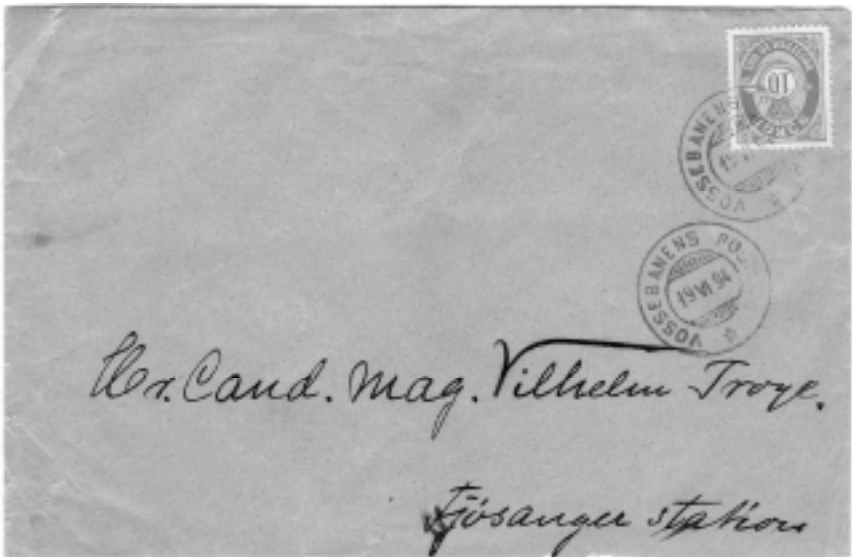 10
NORGE
VOSSEBANENS
VOSSEBANENS
19 VI 94
Hr. Cand. Mag. Vilhelm Troye.
Fjösanger station